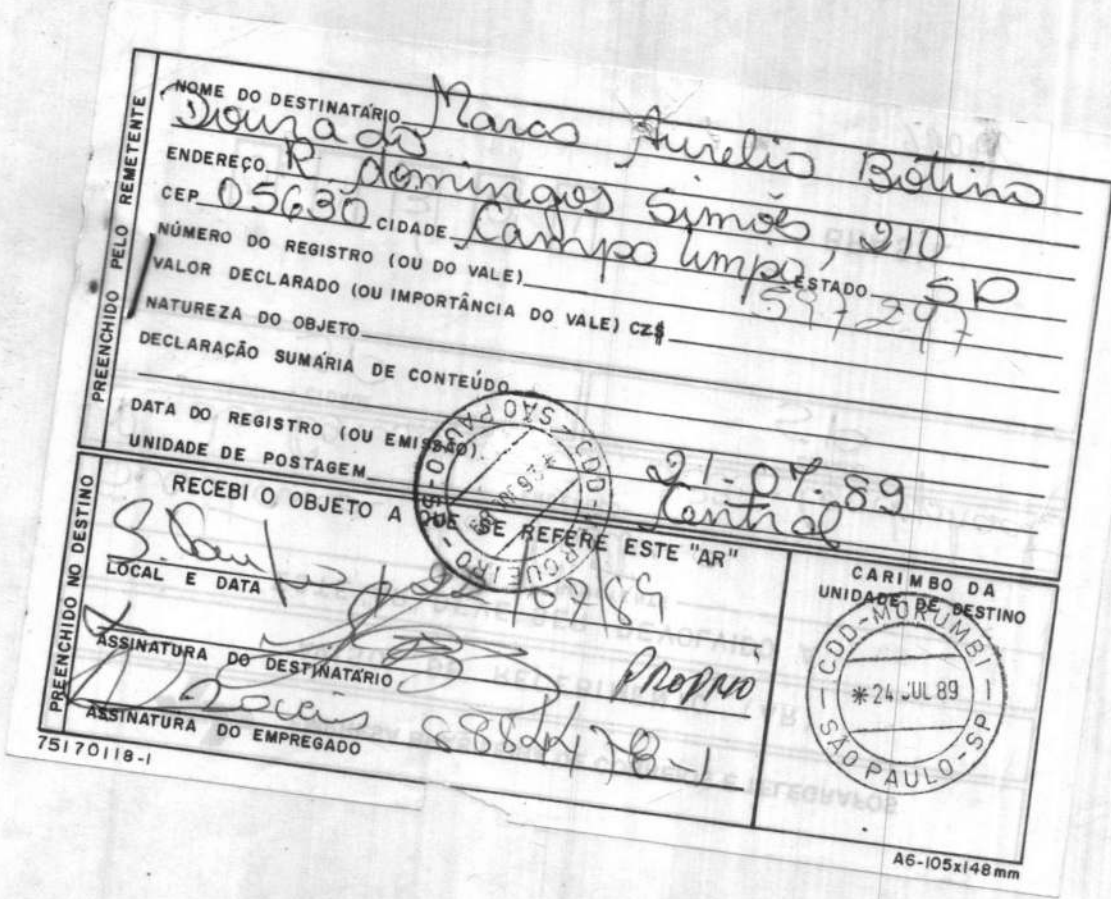 PREENCHIDO PELO REMETENTE
NOME DO DESTINATÁRIO Marco Aurelio Botino
Dourado
ENDEREÇO R domingos Simões 210
CEP 05630 CIDADE Campo limpo, ESTADO SP
NÚMERO DO REGISTRO (OU DO VALE) 597297
VALOR DECLARADO (OU IMPORTÂNCIA DO VALE) CZ$
NATUREZA DO OBJETO
DECLARAÇÃO SUMÁRIA DE CONTEÚDO
DATA DO REGISTRO (OU EMISSÃO). 21-07-89
UNIDADE DE POSTAGEM Central
PREENCHIDO NO DESTINO
RECEBI O OBJETO A QUE SE REFERE ESTE "AR"
S. Paulo 22/07/89
LOCAL E DATA
ASSINATURA DO DESTINATÁRIO PROPRIO
ASSINATURA DO EMPREGADO
CARIMBO DA
UNIDADE DE DESTINO
CDD-MORUMBI
* 24 JUL 89
SÃO PAULO-SP
75170118-1
A6-105x148mm